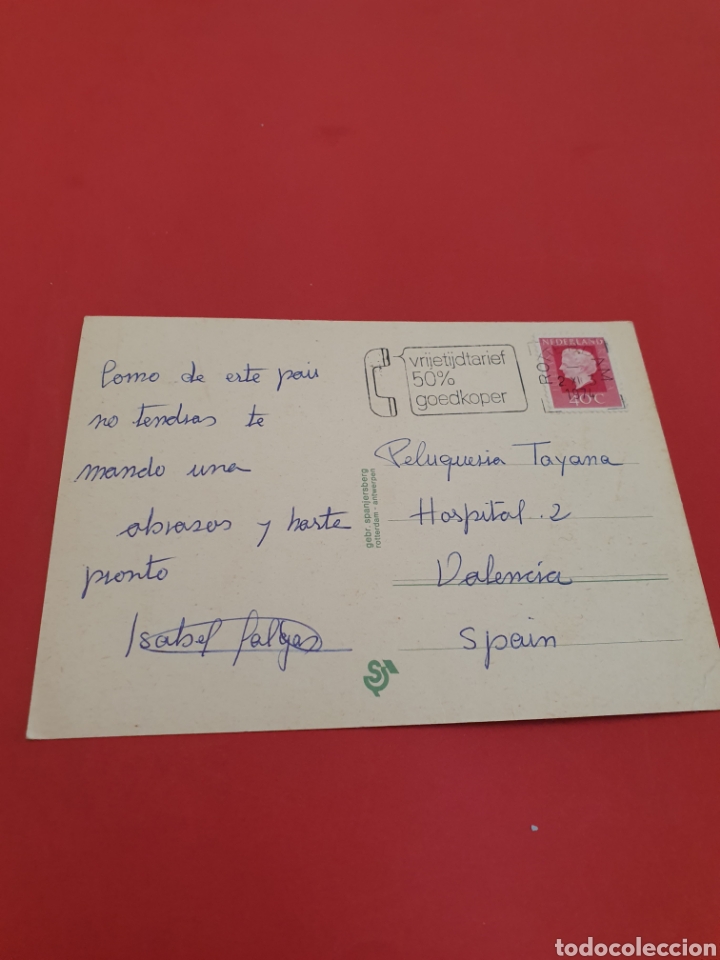 Como de este pais
no tendras te
mando una
abrasos y harte
pronto
Isabel
vrijetijdtarief
50%
goedkoper
NEDERLAND
40c
gebr. spanjersberg
rotterdam - antwerpen
Peluqueria Tayana
Hospital. 2
Valencia
Spain
todocoleccion